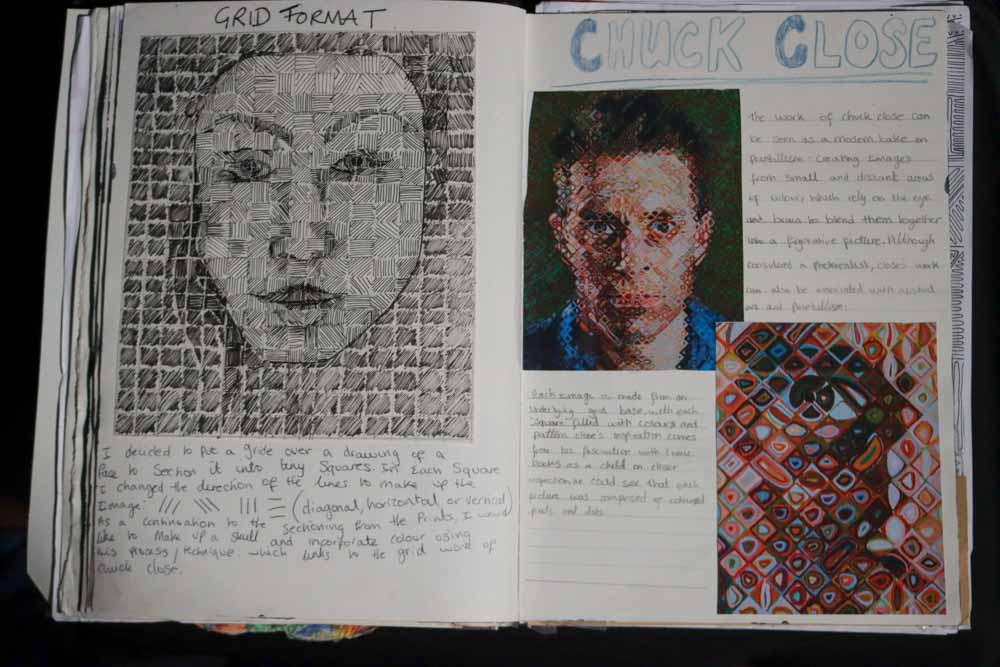 GRID FORMAT
I decided to put a gride over a drawing of a
face to section it into tiny squares. In each square
I changed the direction of the lines to make up the
Image. (diagonal, horizontal or vertical)
As a continuation to the sectioning from the prints, I would
like to make up a skull and incorporate colour using
this process/technique. which links to the grid work of
chuck close.
CHUCK CLOSE
The work of chuck close can
be seen as a modern take on
Pointillism. Creating Images
from small and distant areas
of colour, which rely on the eye
and brain to blend them together
a figurative picture. Although
considered a photorealist, close's work
can also be associated with abstract
art and Pointillism.
Each image is made from an
underlying grid base, with each
square filled with colours and
pattern close's inspiration comes
from his fascination with comic
books as a child on closer
inspection he could see that each
picture was comprised of coloured
and dots.